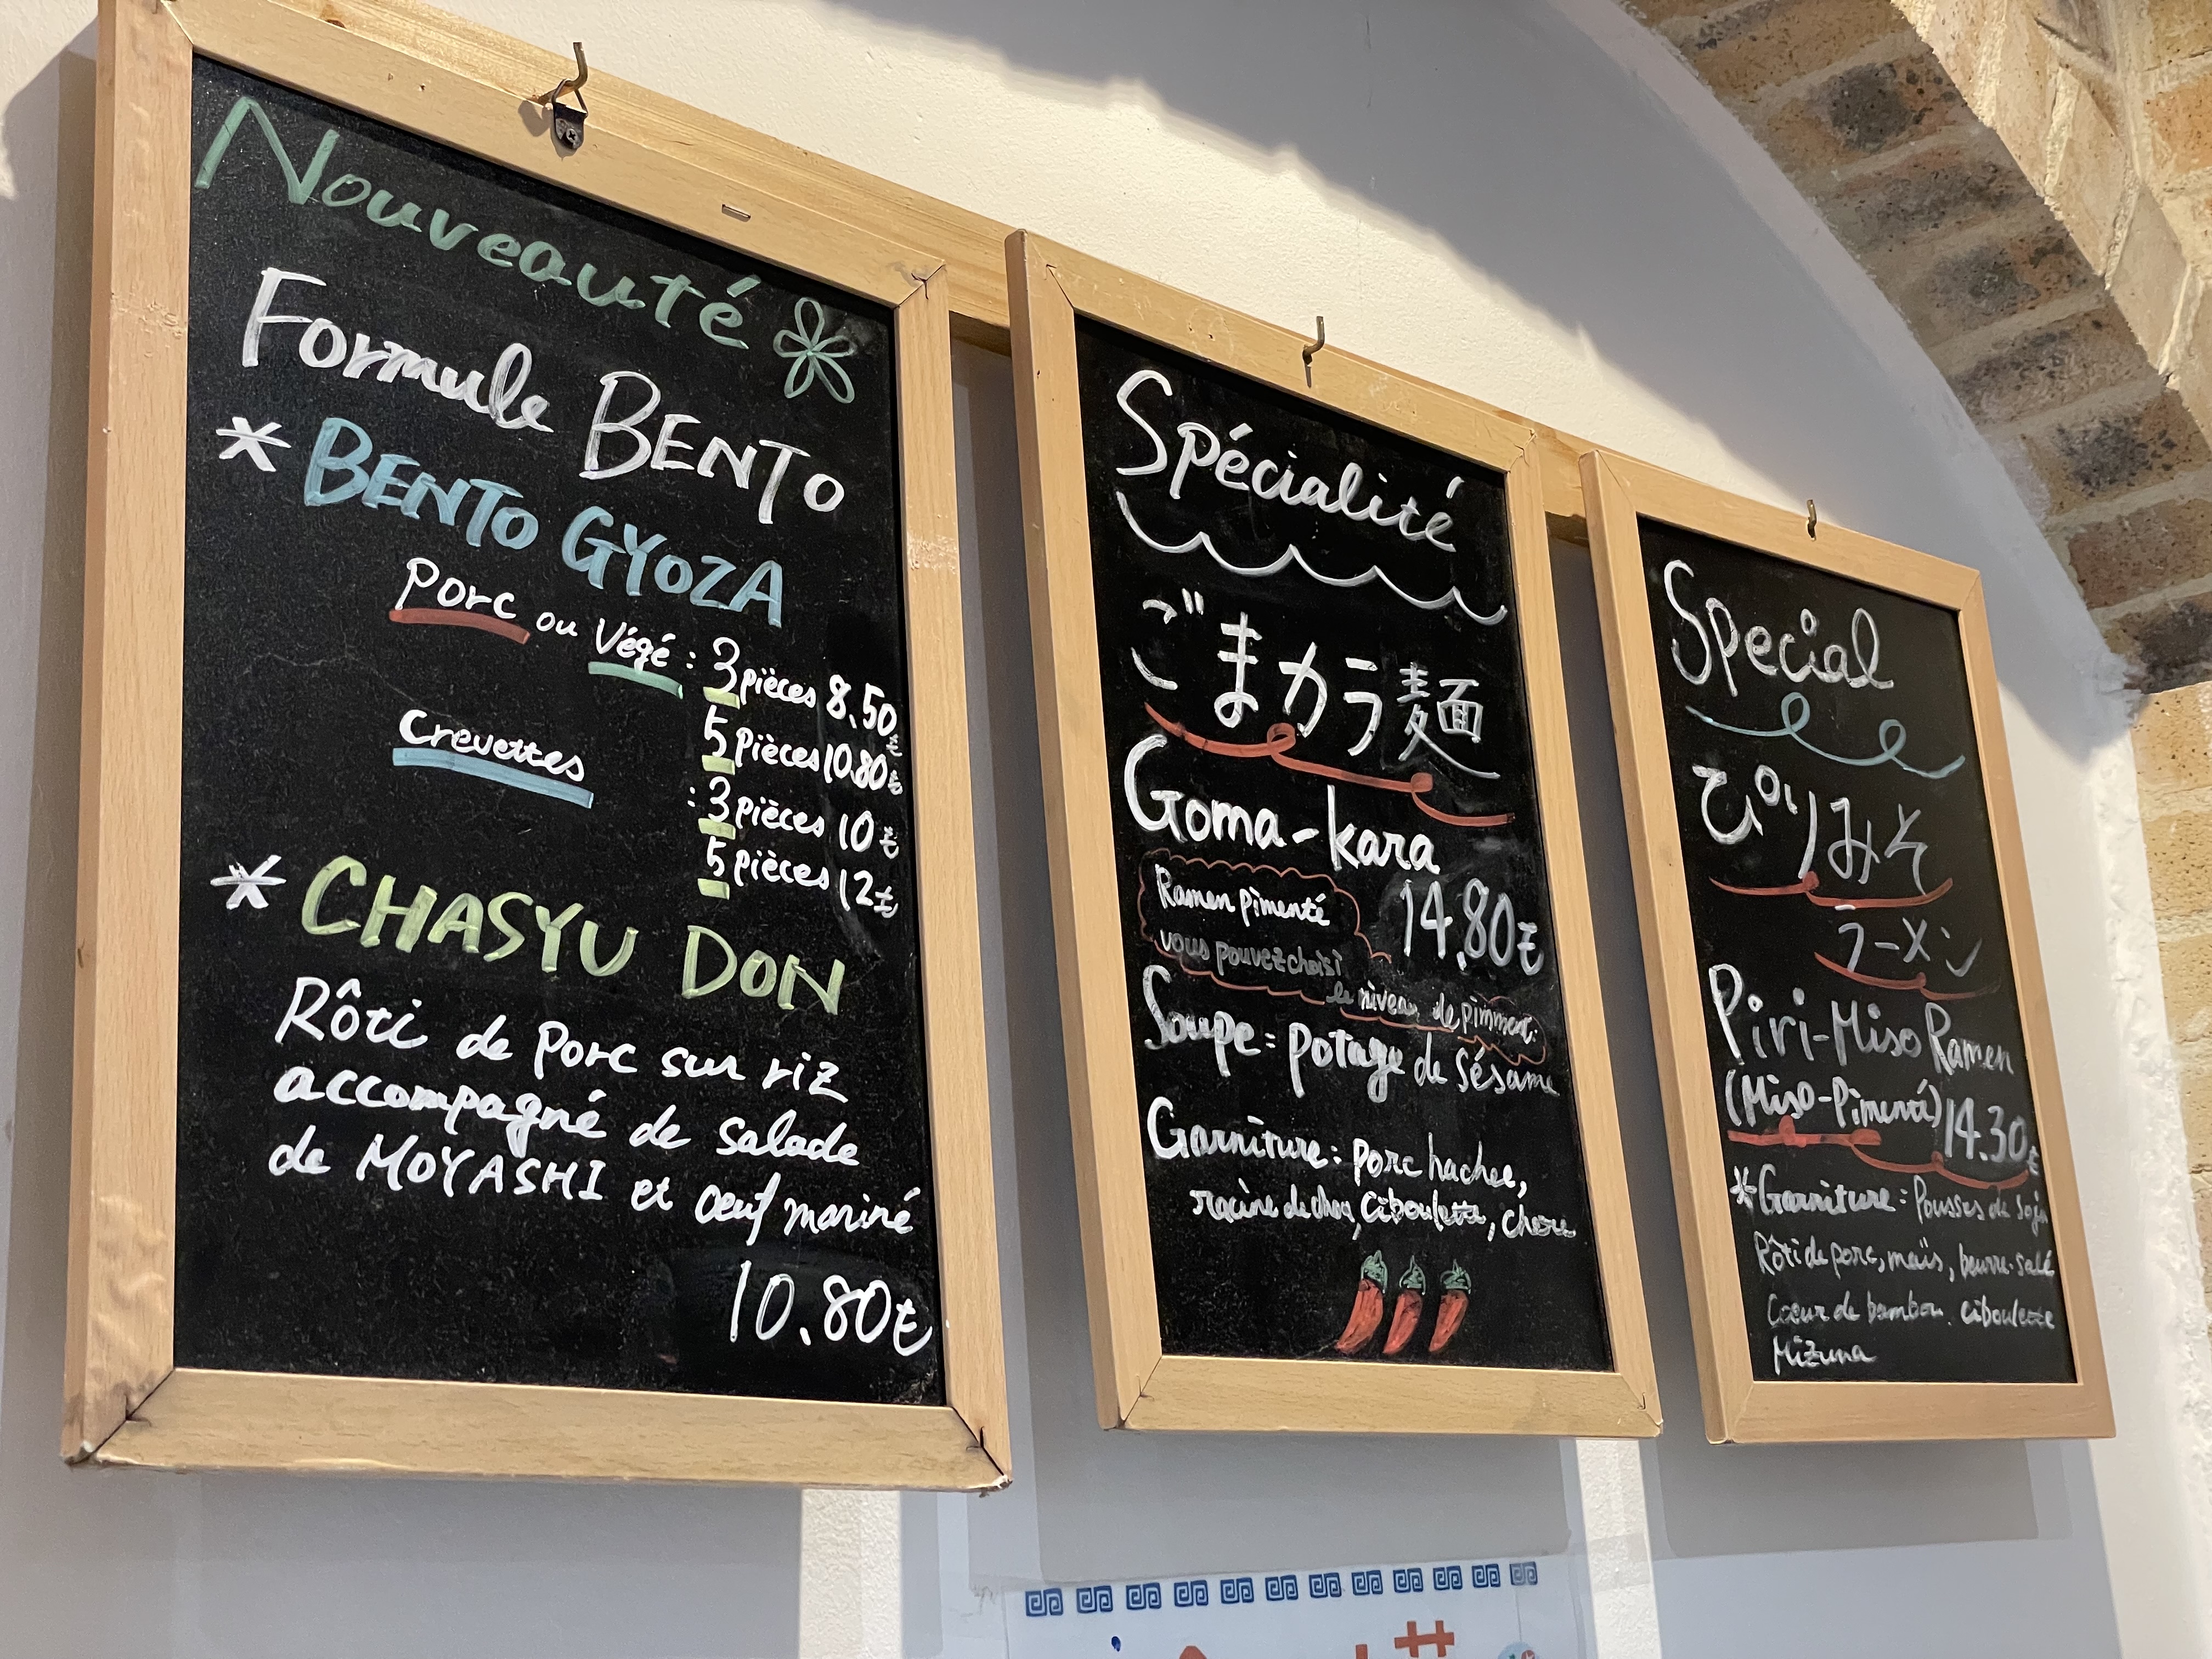 Nouveauté
Formule BENTO
* BENTO GYOZA
Porc ou Végé : 3 pièces 8.50€
5 pièces 10.80€
Crevettes : 3 pièces 10€
5 pièces 12€
* CHASYU DON
Rôti de porc sur riz
accompagné de salade
de MOYASHI et œuf mariné
10.80€
Spécialité
ごまカラ麺
Goma-kara
Ramen pimenté
14.80€
vous pouvez choisi
le niveau de piment.
Soupe: potage de sésame
Garniture: porc hachee,
racine de chou, Ciboulette,
Special
ぴりみそ
ラーメン
Piri-Miso Ramen
(Miso-Pimenté) 14.30€
*Garniture: Pousses de soja
Rôti de porc, maïs, beurre-salé
Coeur de bambou. ciboulette
Mizuna